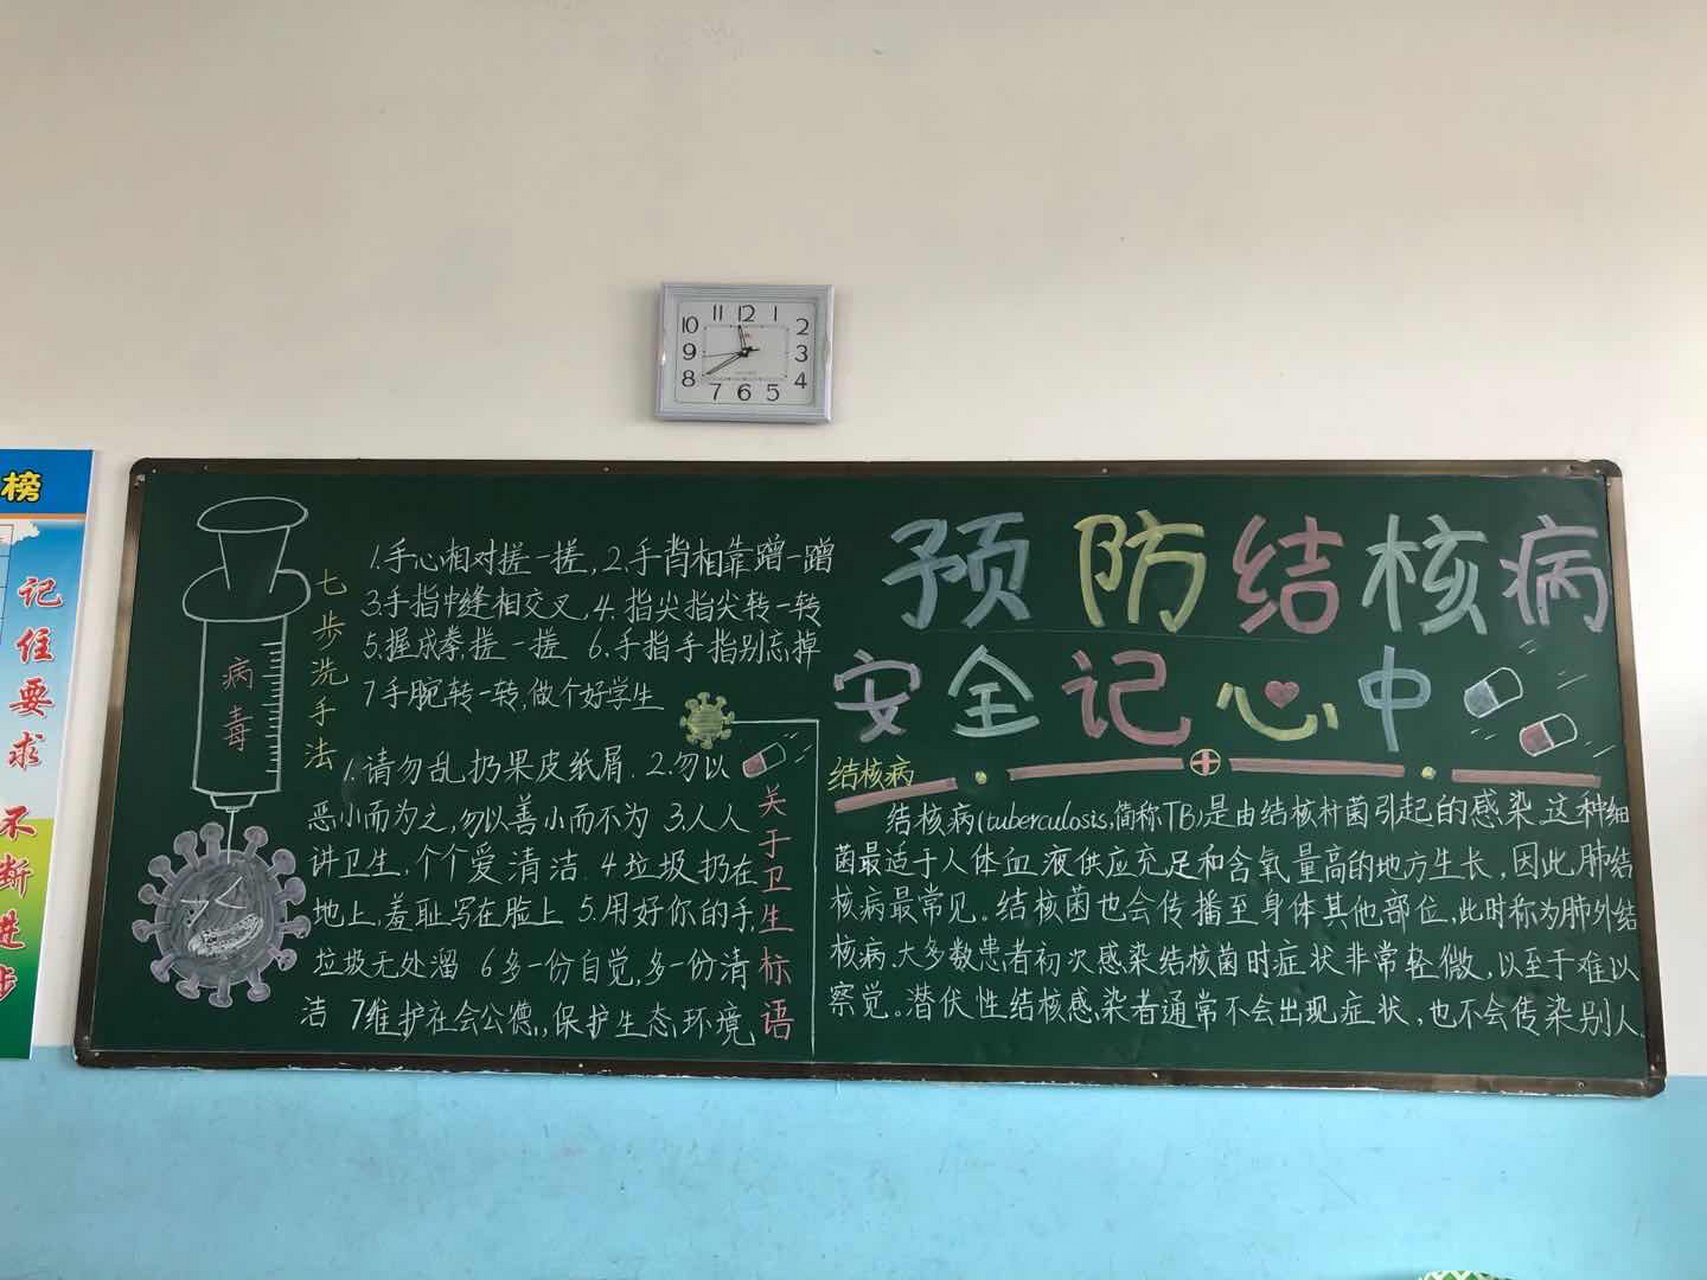 11 12 1
10 2
9 3
8 4
7 6 5
榜
记住要求
不断进步
病毒
七步洗手法
1.手心相对搓一搓,2.手背相靠蹭一蹭
3.手指中缝相交叉,4.指尖指尖转一转
5.握成拳,搓一搓 6.手指手指别忘掉
7手腕转一转,做个好学生
1.请勿乱扔果皮纸屑. 2.勿以
恶小而为之,勿以善小而不为 3.人人
讲卫生,个个爱清洁 4垃圾扔在
地上,羞耻写在脸上 5.用好你的手,
垃圾无处溜 6多一份自觉,多一份清
洁 7维护社会公德,保护生态环境
关于卫生标语
预防结核病
安全记心中
结核病
结核病(tuberculosis,简称TB)是由结核杆菌引起的感染.这种细
菌最适于人体血液供应充足和含氧量高的地方生长,因此,肺结
核病最常见。结核菌也会传播至身体其他部位,此时称为肺外结
核病.大多数患者初次感染结核菌时症状非常轻微,以至于难以
察觉。潜伏性结核感染者通常不会出现症状,也不会传染别人.